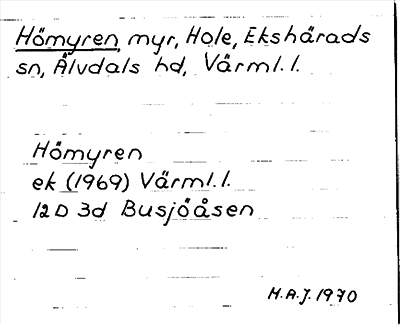 Hömyren, myr, Hole, Ekshärads
sn, Älvdals hd, Värml. l.
Hömyren
ek (1969) Värml. l.
12 D 3d Busjöåsen
H.A.J. 1970